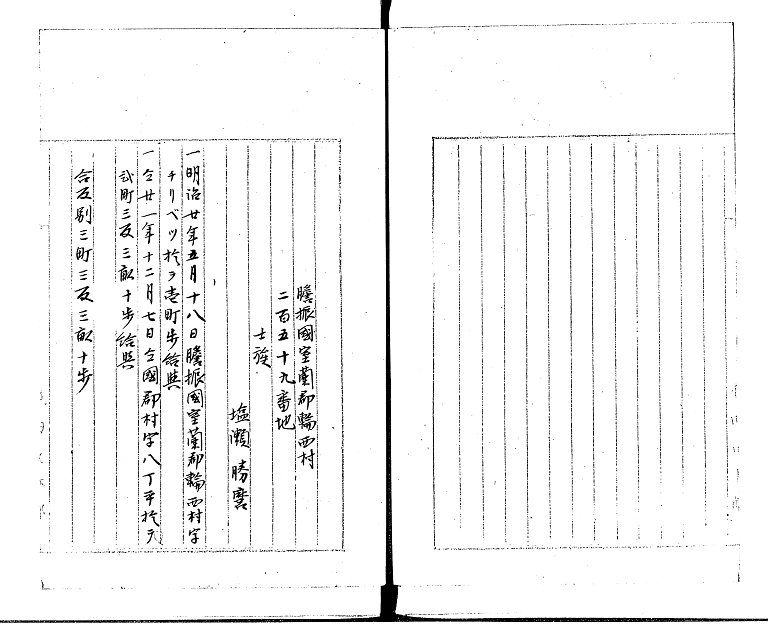 膽振國室蘭郡輪西村
二百五十九番地
士族
塩瀬勝麿
一明治廿年五月十八日膽振國室蘭郡輪西村字
チリベツ於テ壱町歩給與
一仝廿一年十二月七日仝國郡村字八丁平於テ
弐町三反三畝十歩給與
合反別三町三反三畝十歩